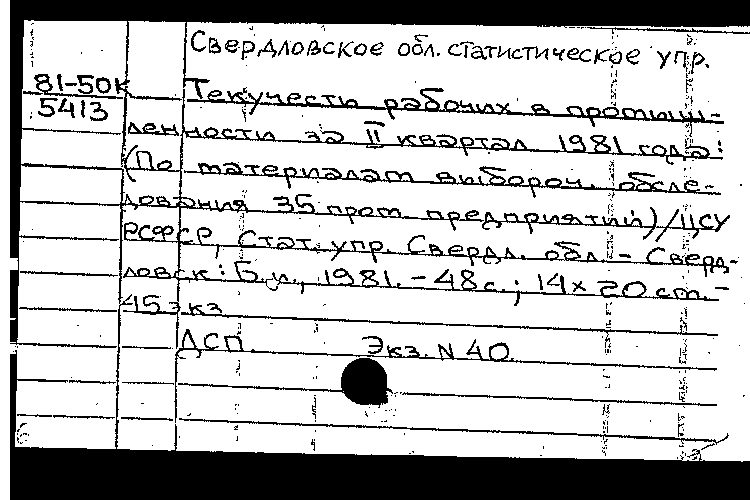 Свердловское обл. статистическое упр.
81-50К
5413
Текучесть рабочих в промыш-
ленности за II квартал 1981 года:
(По материалам выбороч. обсле-
дования 35 пром. предприятий) / ЦСУ
РСФСР, Стат. упр. Свердл. обл. - Сверд-
ловск: Б.и., 1981. - 48 с.; 14 х 20 см. -
45 экз
ДСП. Экз. N 40